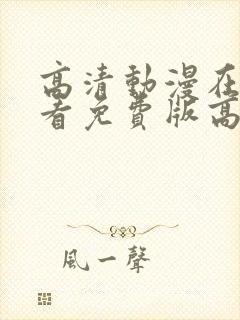 高清動漫在
看免費版高
風一聲